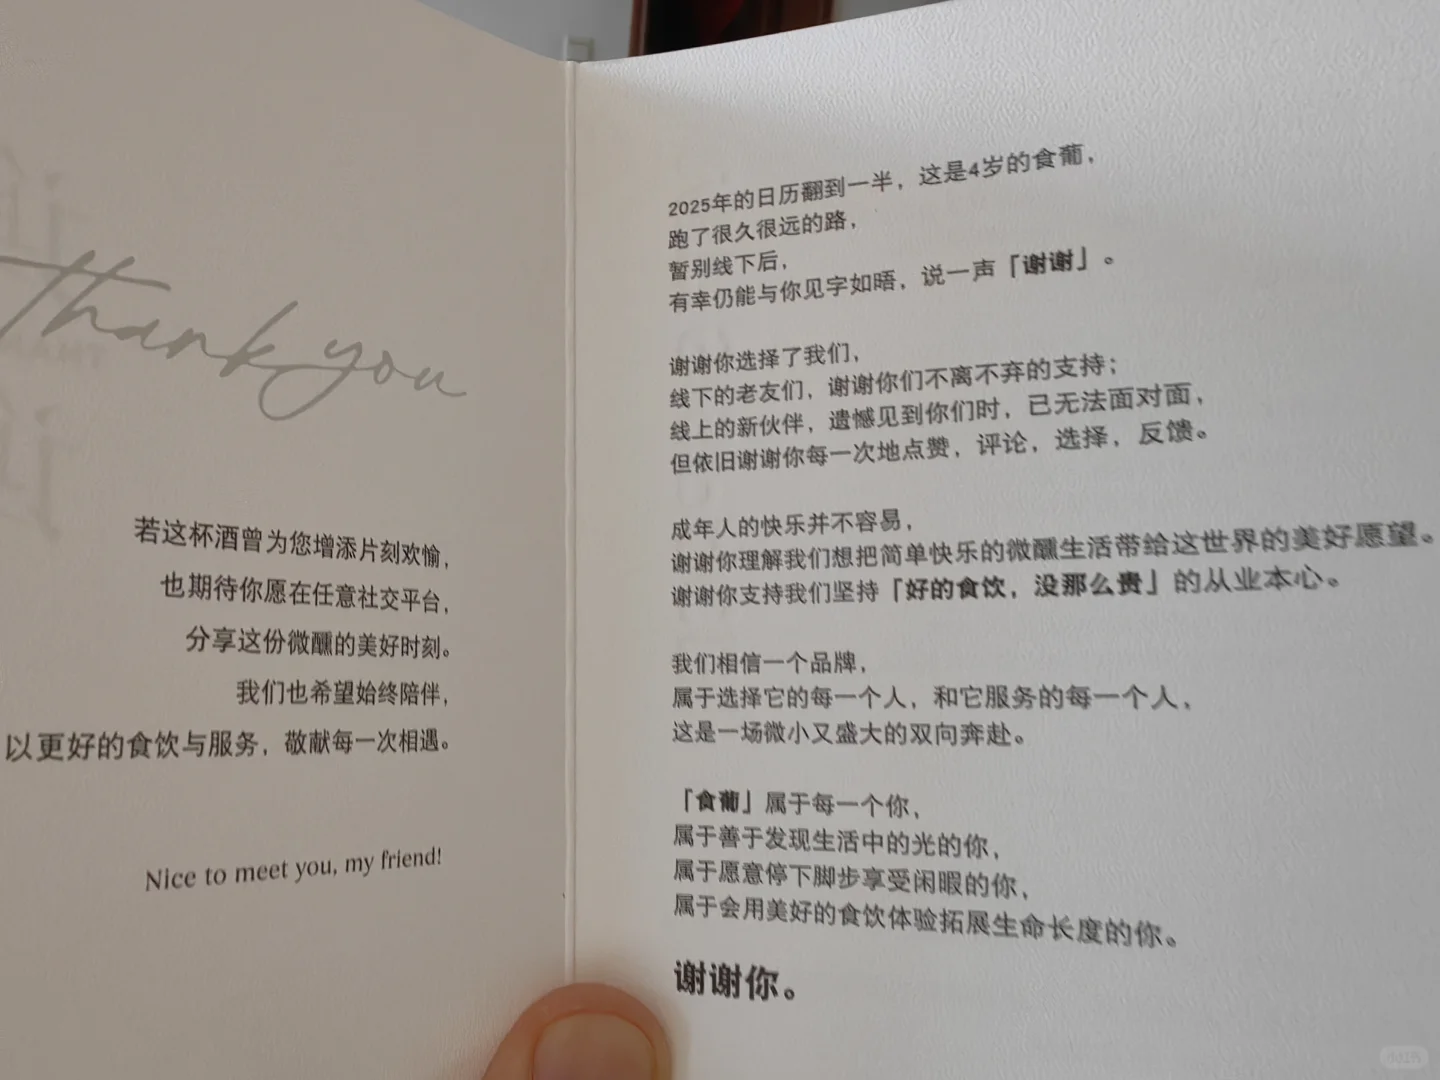 Thank you
若这杯酒曾为您增添片刻欢愉，
也期待你愿在任意社交平台，
分享这份微醺的美好时刻。
我们也希望始终陪伴，
以更好的食饮与服务，敬献每一次相遇。
Nice to meet you, my friend!
2025年的日历翻到一半，这是4岁的食葡，
跑了很久很远的路，
暂别线下后，
有幸仍能与你见字如晤，说一声「谢谢」。
谢谢你选择了我们，
线下的老友们，谢谢你们不离不弃的支持；
线上的新伙伴，遗憾见到你们时，已无法面对面，
但依旧谢谢你每一次地点赞，评论，选择，反馈。
成年人的快乐并不容易，
谢谢你理解我们想把简单快乐的微醺生活带给这世界的美好愿望。
谢谢你支持我们坚持「好的食饮，没那么贵」的从业本心。
我们相信一个品牌，
属于选择它的每一个人，和它服务的每一个人，
这是一场微小又盛大的双向奔赴。
「食葡」属于每一个你，
属于善于发现生活中的光的你，
属于愿意停下脚步享受闲暇的你，
属于会用美好的食饮体验拓展生命长度的你。
谢谢你。